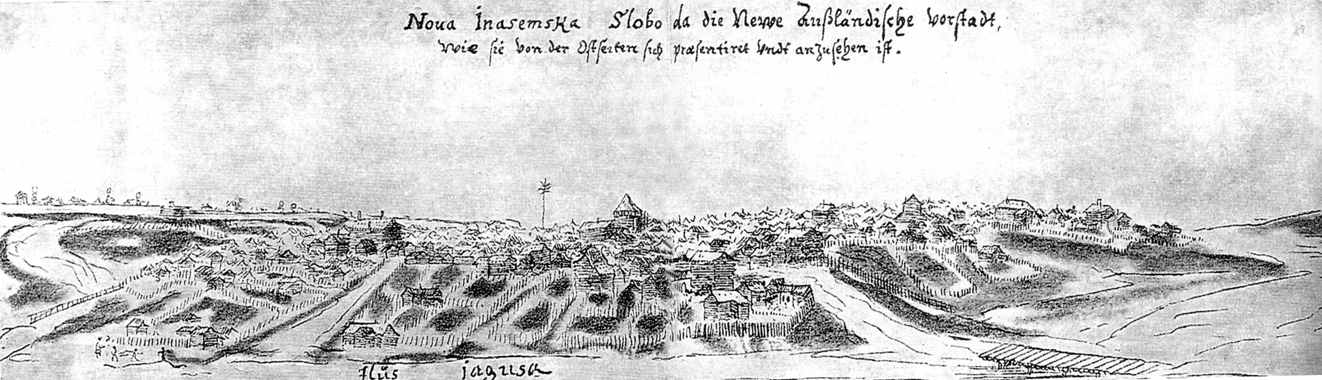 Nova Inasemska Slobo da die Newe Außländische vorstadt,
wie sie von der Ostseiten sich præsentiret vndt anzusehen ist.
flüs jagusa